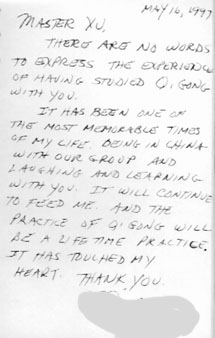 MAY 16, 1997
MASTER XU,
THERE ARE NO WORDS
TO EXPRESS THE EXPERIENCE
OF HAVING STUDIED QI GONG
WITH YOU.
IT HAS BEEN ONE OF
THE MOST MEMORABLE TIMES
OF MY LIFE. BEING IN CHINA
WITH OUR GROUP AND
LAUGHING AND LEARNING
WITH YOU. IT WILL CONTINUE
TO FEED ME. AND THE
PRACTICE OF QI GONG WILL
BE A LIFE TIME PRACTICE.
IT HAS TOUCHED MY
HEART. THANK YOU.